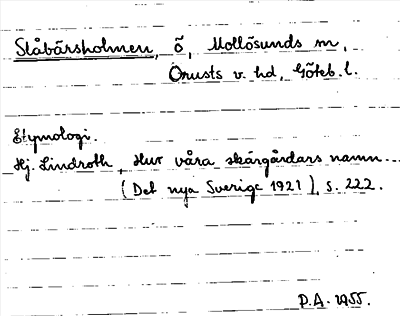 Slåbärsholmen, ö, Mollösunds sn,
Orusts v. hd, Göteb. l.
Etymologi.
Hj. Lindroth, Hur våra skärgårdars namn...
(Det nya Sverige 1921), s. 222.
P.A. 1955.